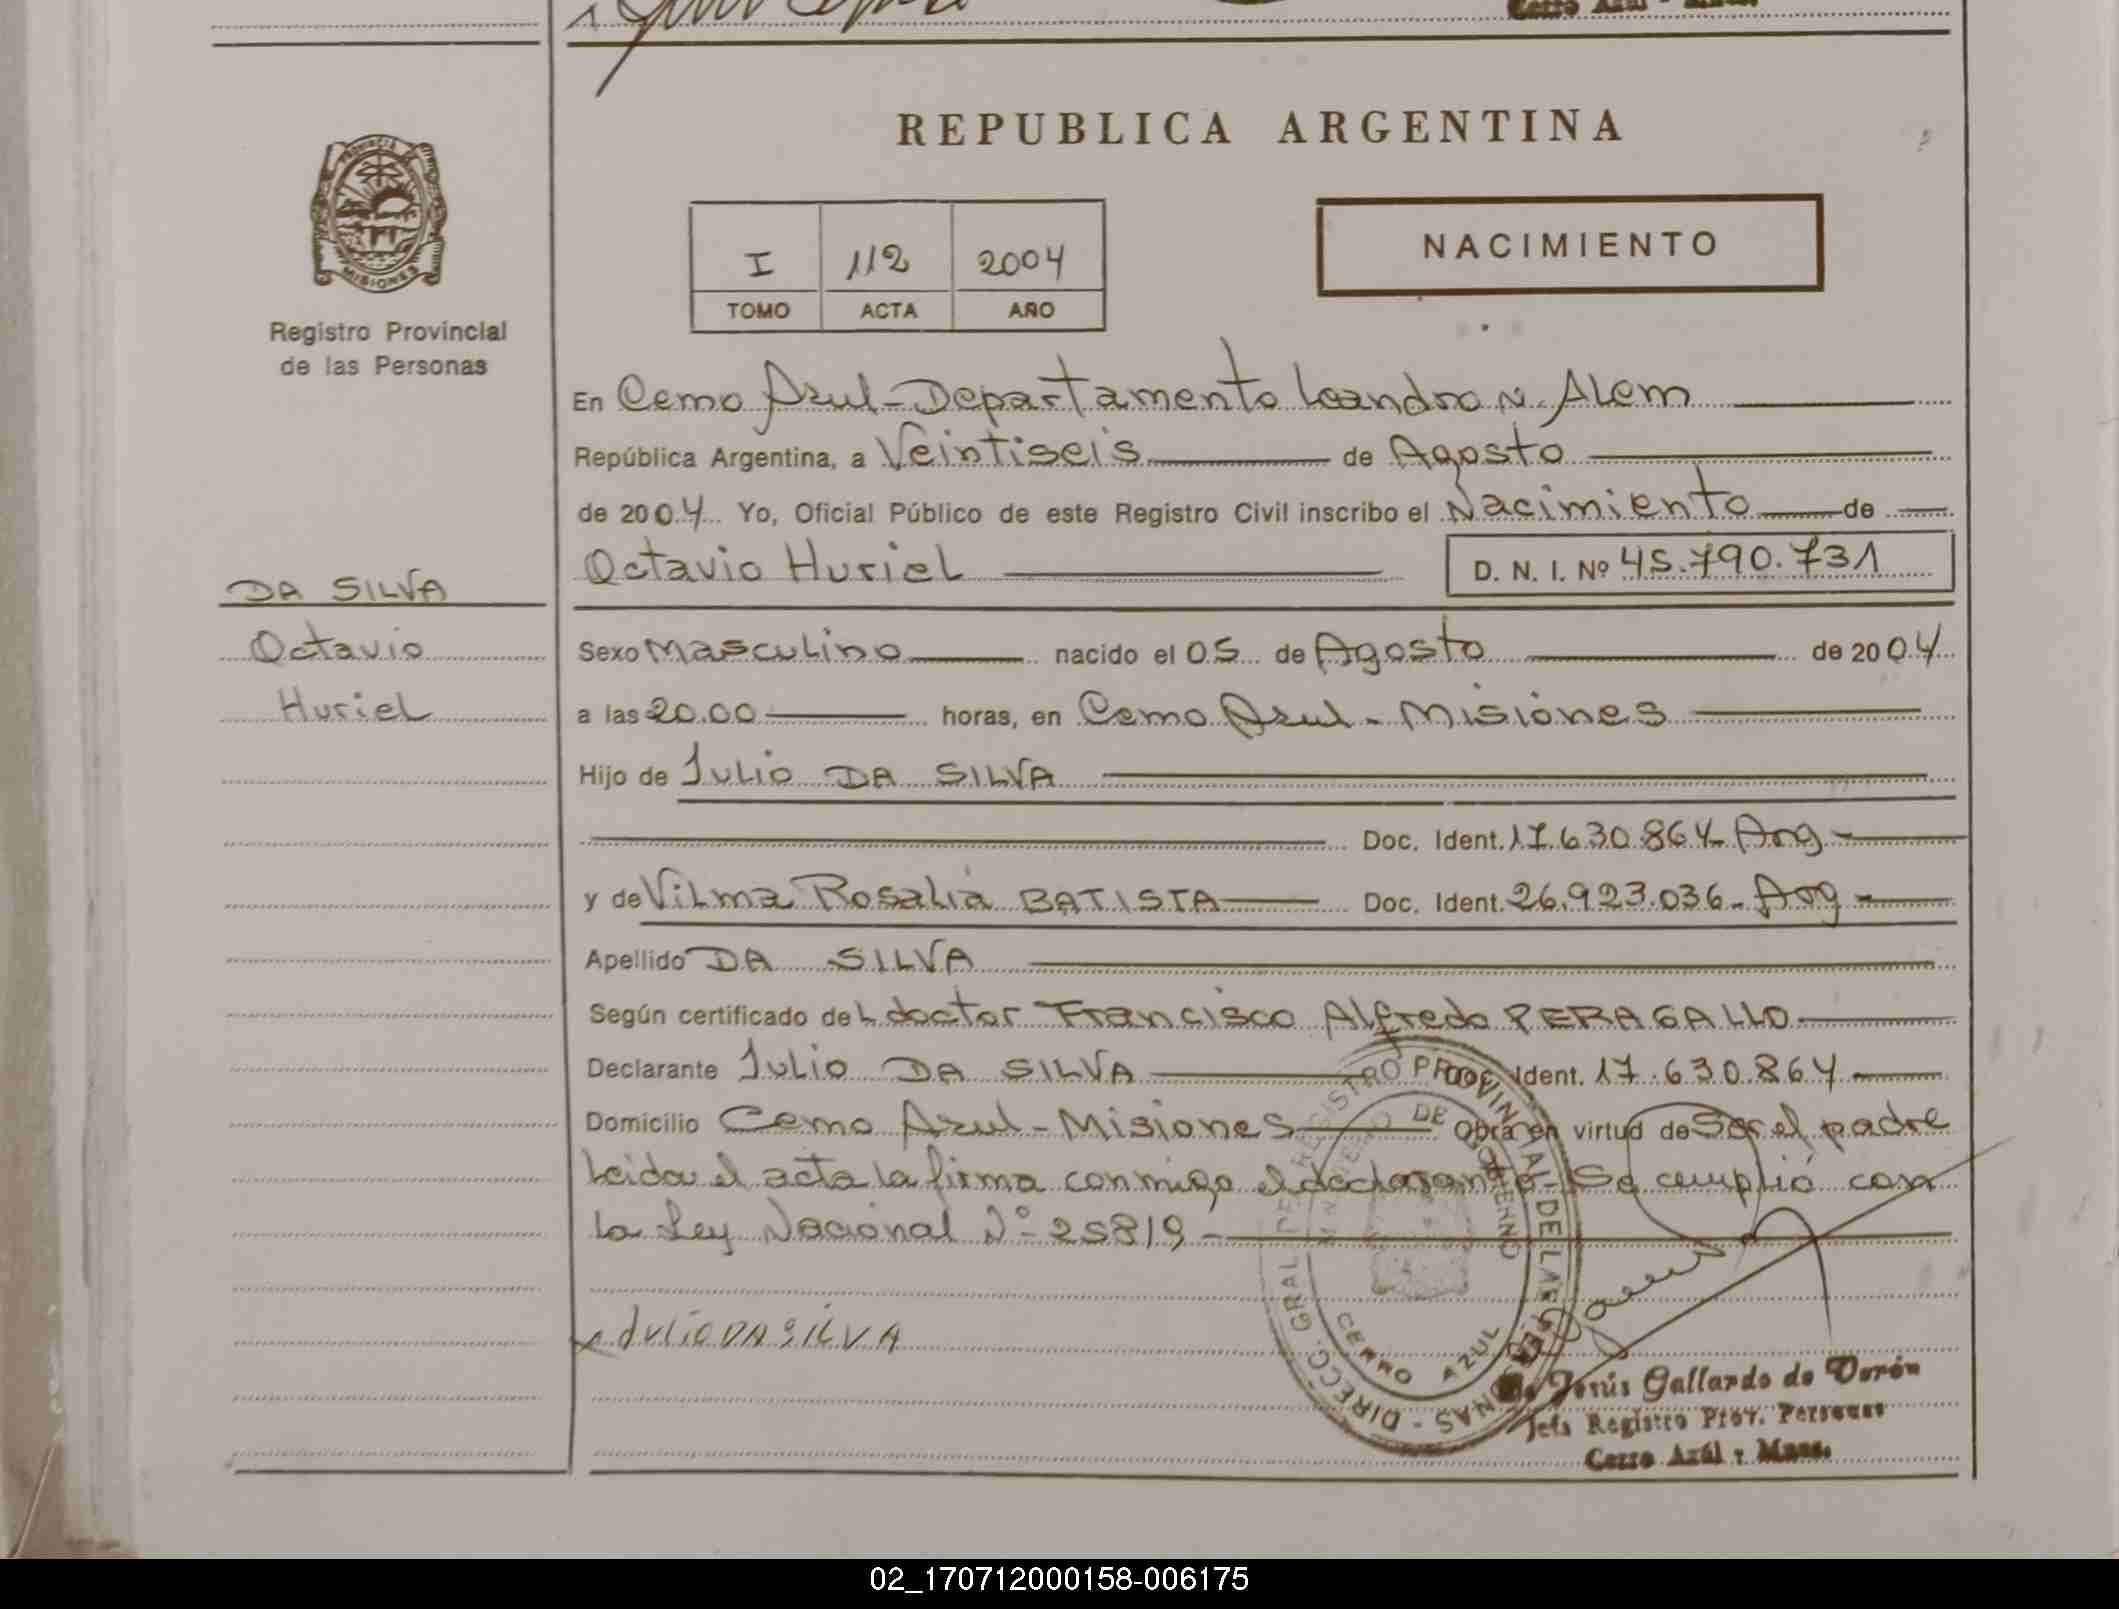 Cerro Azul - Mnes.
REPUBLICA ARGENTINA
PROVINCIA DE
MISIONES
Registro Provincial
de las Personas
I 112 2004
TOMO ACTA AÑO
NACIMIENTO
En Cerro Azul - Departamento Leandro N. Alem
República Argentina, a Veintiseis de Agosto
de 2004 Yo, Oficial Público de este Registro Civil inscribo el Nacimiento de
Octavio Huriel D. N. I. Nº 45.790.731
DA SILVA
Octavio
Huriel
Sexo Masculino nacido el 05 de Agosto de 2004
a las 20.00 horas, en Cerro Azul - Misiones
Hijo de Julio DA SILVA
Doc. Ident. 17.630.864 - Arg -
y de Vilma Rosalia BATISTA Doc. Ident. 26.923.036 - Arg -
Apellido DA SILVA
Según certificado del doctor Francisco Alfredo PERAGALLO
Declarante Julio DA SILVA Doc. Ident. 17.630.864
Domicilio Cerro Azul - Misiones Obra en virtud de Ser el padre
Leida el acta la firma conmigo el declarante - Se cumplió con
la Ley Nacional Nº 25819 -
JULIO DA SILVA
DIRECC. GRAL DE REGISTRO PROVINCIAL DE LAS PERSONAS -
MINISTERIO DE GOBIERNO
CERRO AZUL
Jesús Gallardo de Dorón
Jefa Registro Prov. Personas
Cerro Azúl - Mnes.
02_170712000158-006175